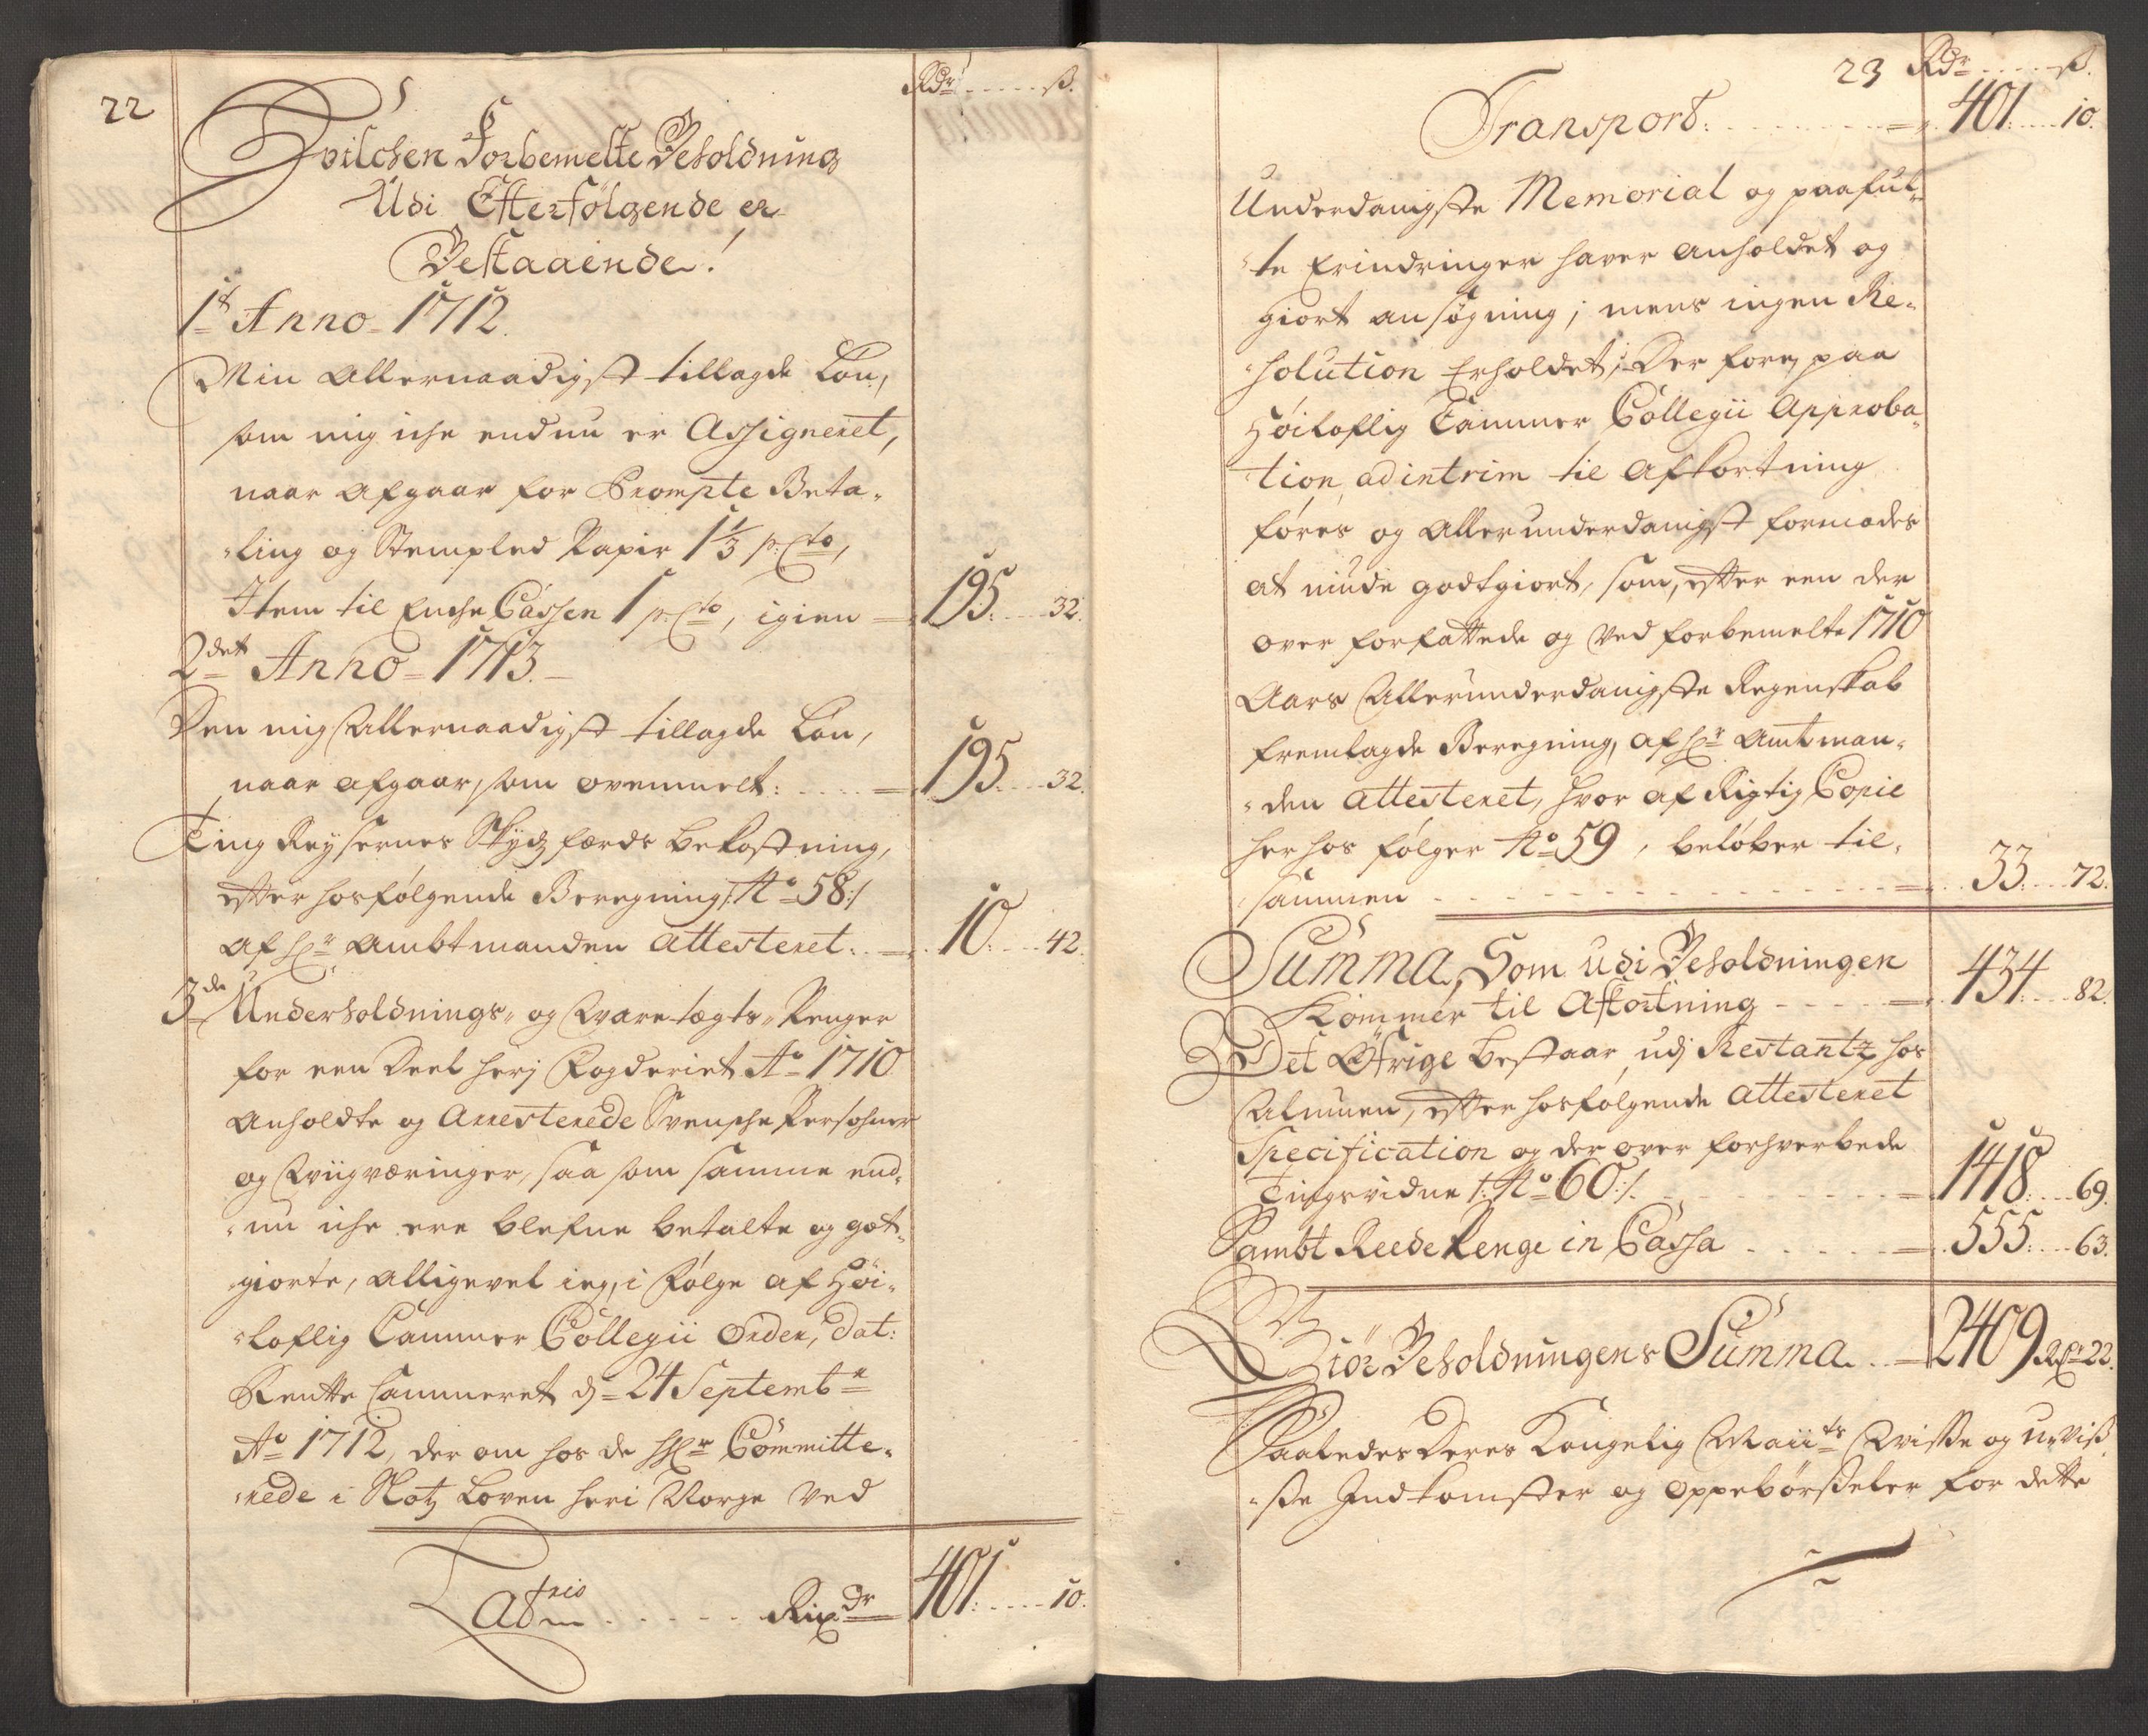 22
Rdr ß.
Hvilchen Forbemelte Beholdning
Udi Efterfölgende er
Bestaaende!
1st Anno 1712.
Min Allernaadigst tillagde Lön,
som mig iche endnu er Assigneret,
naar afgaar for Prompte Beta-
ling og Stempled Papir 1⅓ p: Cto,
Item til Enche Cassen 1 p: Cto, igien = 195: 32.
2det Anno 1713.
Den mig Allernaadigst tillagde Lön,
naar afgaar, som ovenmelt: = 195: 32.
Ting Reysernes Skydzfærds bekostning,
efter hosfölgende Beregning /: No 58 :/
af Hr Ambtmanden Attesteret: = 10: 42.
3de Underholdnings- og Varetægts- Penger
for een Deel herj Fogderiet Ao 1710
Anholdte og Arresterede Svenske Persohner
og Qviigværinger, saa som samme end-
nu iche ere blefne betalte og got-
giorte, alligevel ieg, i Fölge af Höi-
loflig Cammer Collegii Order, dat:
Rentte Cammeret d= 24 Septembr
Ao 1712, der om hos de HHr Committe-
rede i Slotz Loven heri Norge ved
Latris Rixdr = 401: 10.
23 Rdr ß.
Transport: = 401: 10.
Underdanigste Memorial og paaful-
te Erindringer haver anholdet og
giort ansögning; mens ingen Re-
solution Erholdet; Der fore, paa
Höiloflig Cammer Collegii Approba-
tion, ad intrim til Afkortning
föres og Allerunderdanigst formodes
at niude godtgiort, som, efter een der
over forfattede og ved forbemelte 1710
Aars Allerunderdanigste Regenskab
fremlagde Beregning, af Hr Amtman-
den Attesteret, hvor af Rigtig Copie
her hos fölger No 59, belöber til-
sammen = 33: 72.
Summa, Som udi Beholdningen
Kommer til Afkortning = 434: 82.
Det Öfrige bestaar udj Restantz hos
Almuen, efter hosfölgende Attesteret
Specification og der over forhverbede
Tingsvidne /: No 60 :/. = 1418: 69.
Sambt Reede Penge in Cassa = 555: 63.
Giör Beholdningens Summa = 2409 Rdr 22.
Saaledes Deres Kongelig Maiits Visse og u-Viß-
ße Indkomster og oppebörßeler for dette